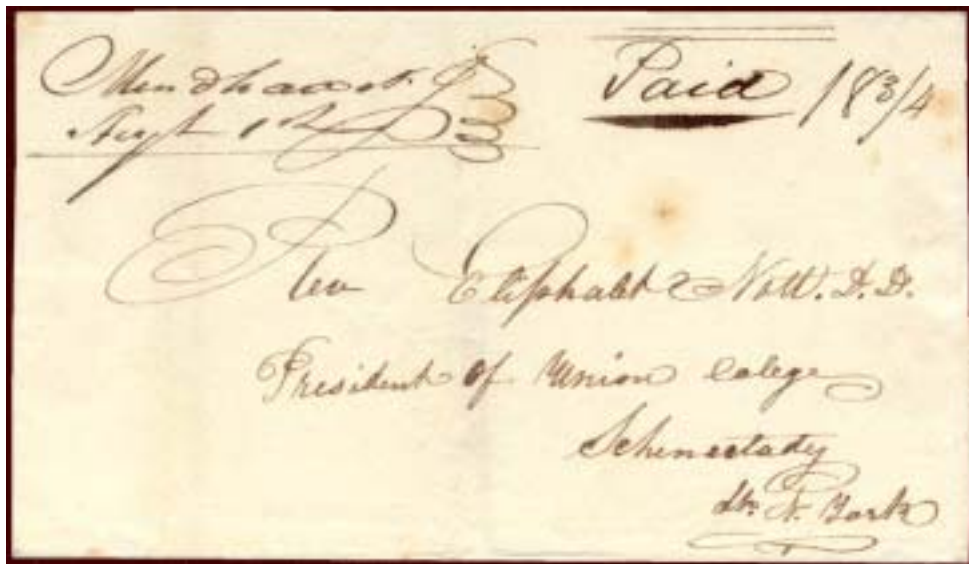 Mendham N. J. Paid 18 3/4
Augt 1st
Rev Eliphalet Nott. D. D.
President of Union Colege
Schenectady
N. York